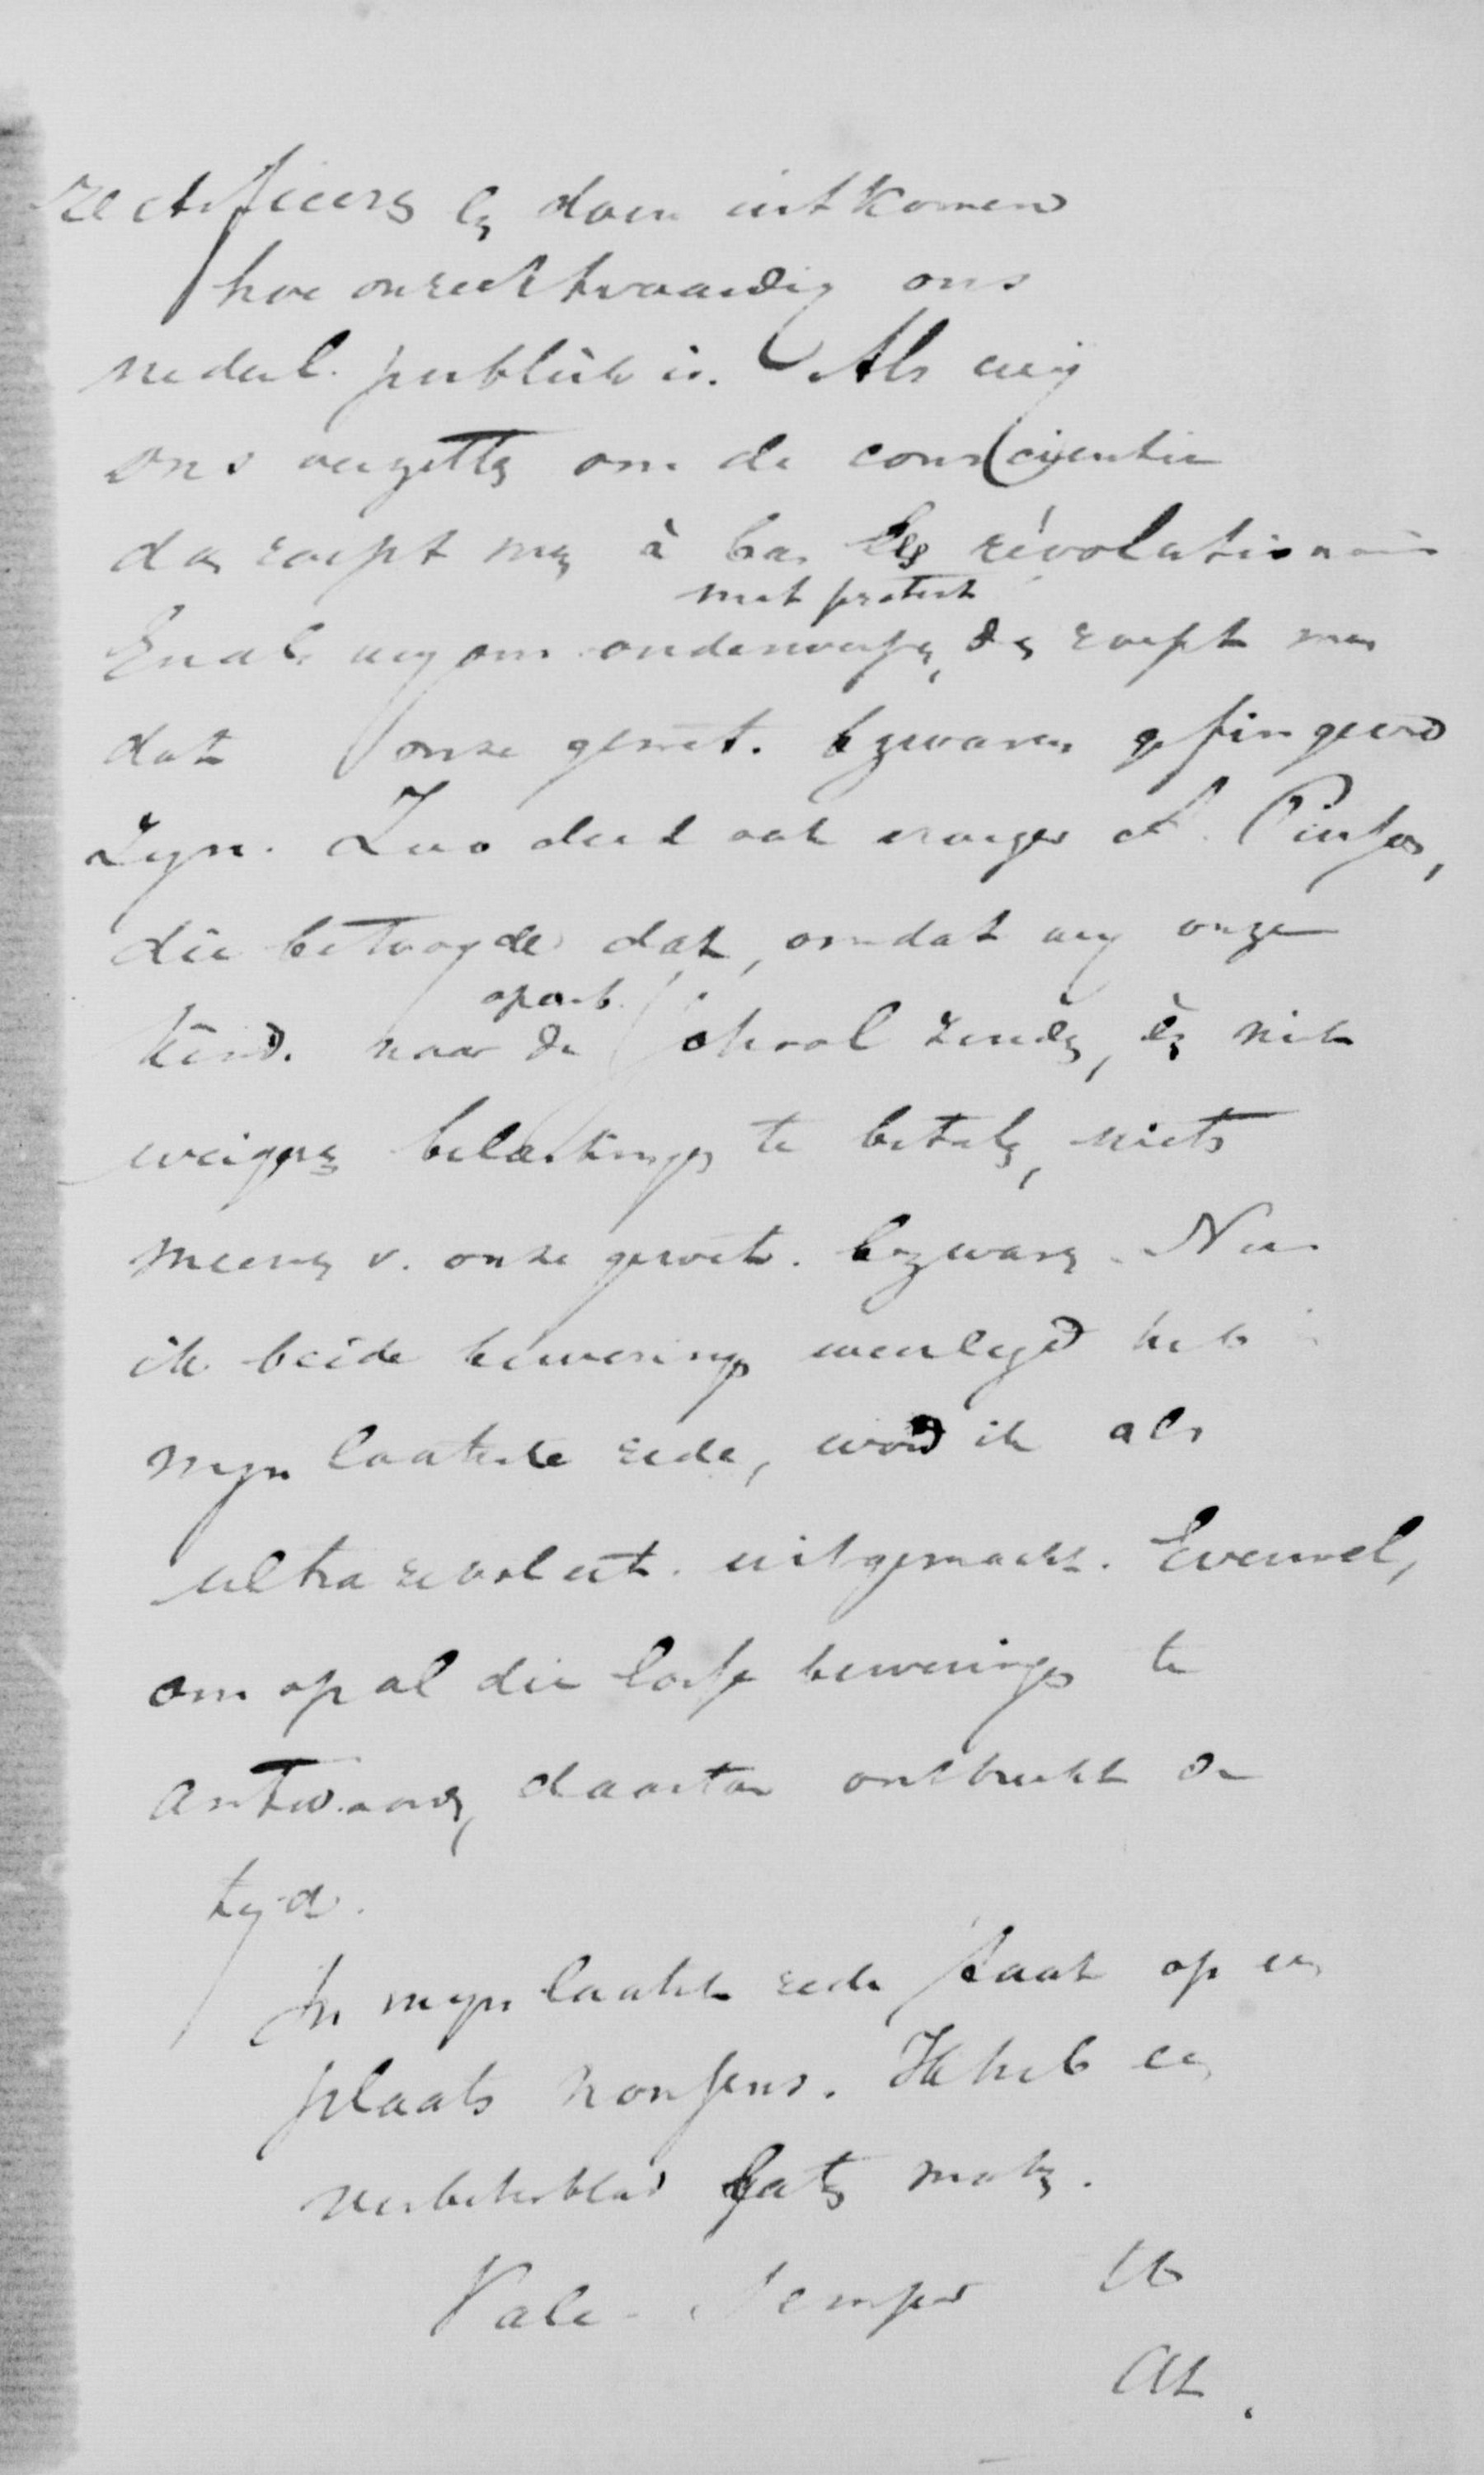 rectificeren en doen uitkomen
hoe onrechtvaardig ons
nederl. publiek is. Als wij
ons verzetten om de consciëntie
dan roept men à bas les révolutionair
met protest
En als wy ons onderwerpen, dan roept men
dat onze gewet. bezwaren gefingeerd
zyn. Zoo deed ook vroeger A. Pierson,
die betoogde dat, omdat wy onze
kind. naar de school zenden, en niet
openb.
weigeren belastingen te betalen, niets
meenen v. onze gewet. bezwaren. Nu
ik beide beweringen weerlegd heb in
myn laatste rede, word ik als
ultra revolut. uitgemaakt. Evenwel,
om op al die losse beweringen te
antwoorden, daartoe ontbreekt de
tyd.
In myn laatste rede staat op een
plaats nonsens. Ik heb een
verbeterblad laten maken.
Vale. Semper